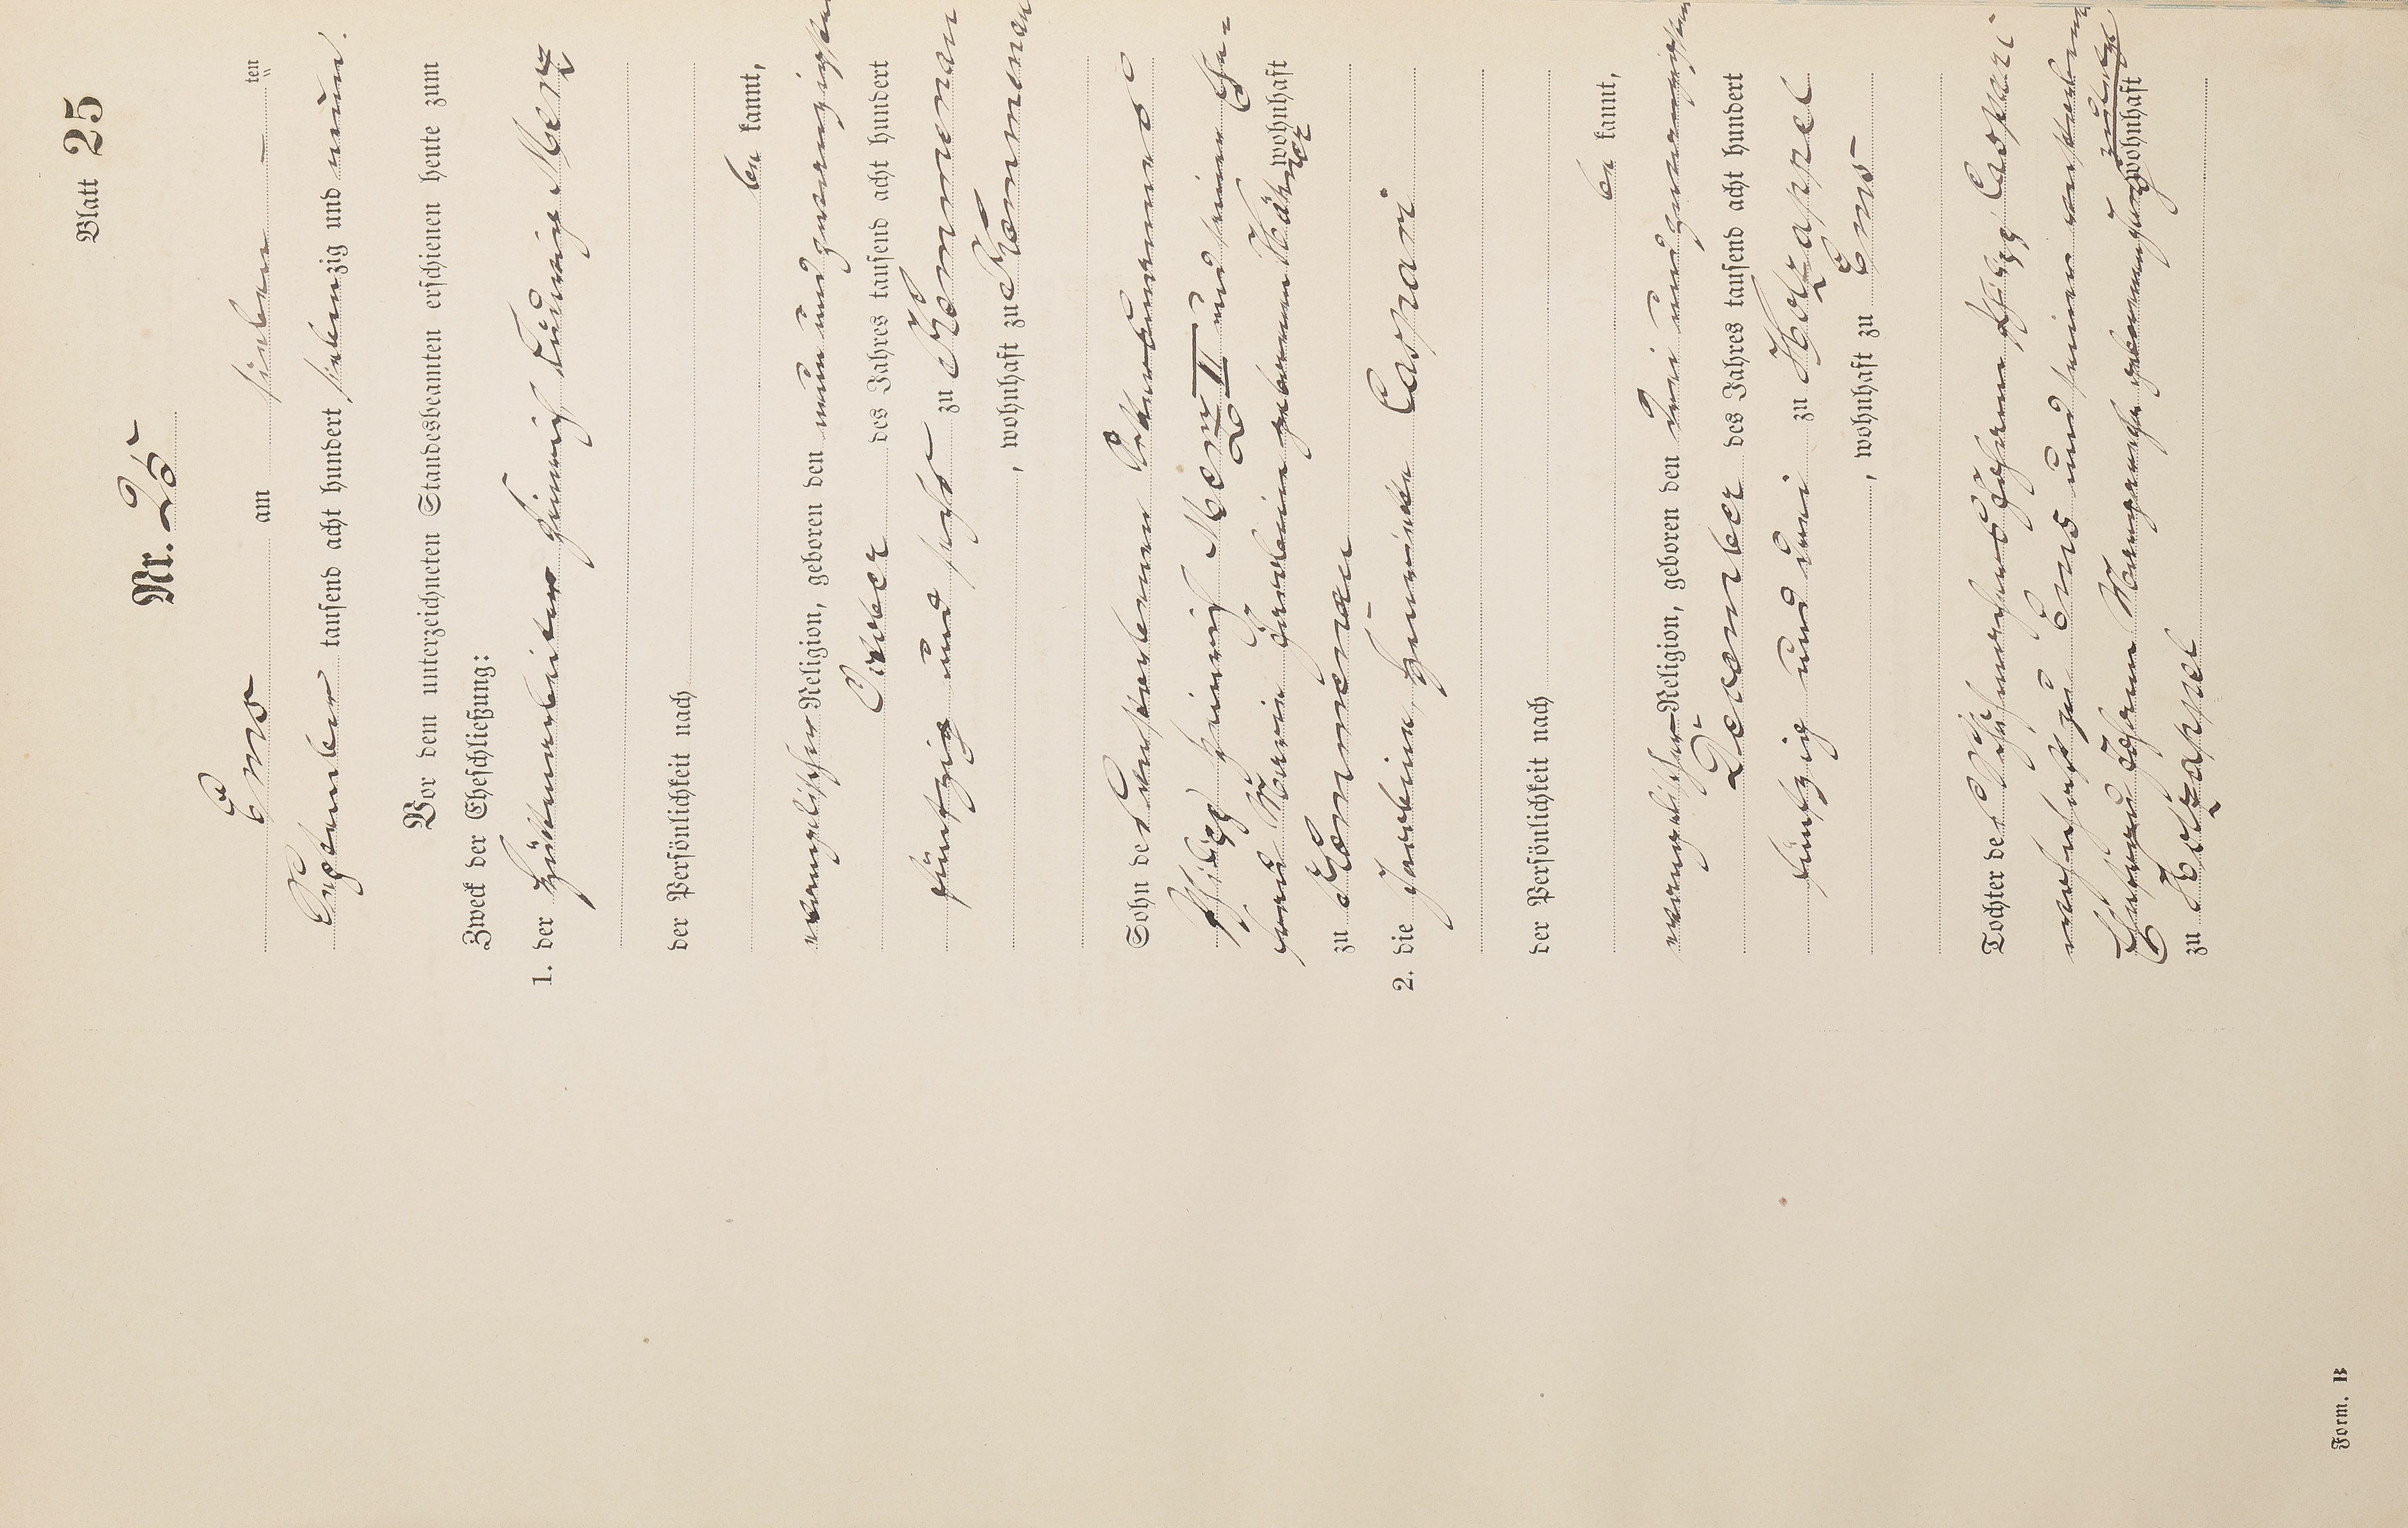 Blatt 25
Nr. 25
Ems am sieben – ten
September tausend acht hundert siebenzig und neun.
Vor dem unterzeichneten Standesbeamten erschienen heute zum
Zweck der Eheschließung:
1. der Hüttenarbeiter Heinrich Ludwig Merz
der Persönlichkeit nach
be kannt,
evangelischer Religion, geboren den neun und zwanzigsten
October des Jahres tausend acht hundert
fünfzig und sechs zu Kömmenau
, wohnhaft zu Kömmenau
Sohn des verstorbenen
Philipp Heinrich Merz II und seiner Ehe-
frau Maria geborenen wohnhaft
zu Kömmenau
2. die Henriette Caspari
der Persönlichkeit nach
be kannt,
evangelischer Religion, geboren den drei und zwanzigsten
December des Jahres tausend acht hundert
fünfzig und drei zu Holzappel
, wohnhaft zu Ems
Tochter des Johann Philipp Caspari
wohnhaft zu Ems und seiner verstorbenen
Ehefrau Johanna Margaretha geborenen zuletzt wohnhaft
zu Holzappel
Form. B